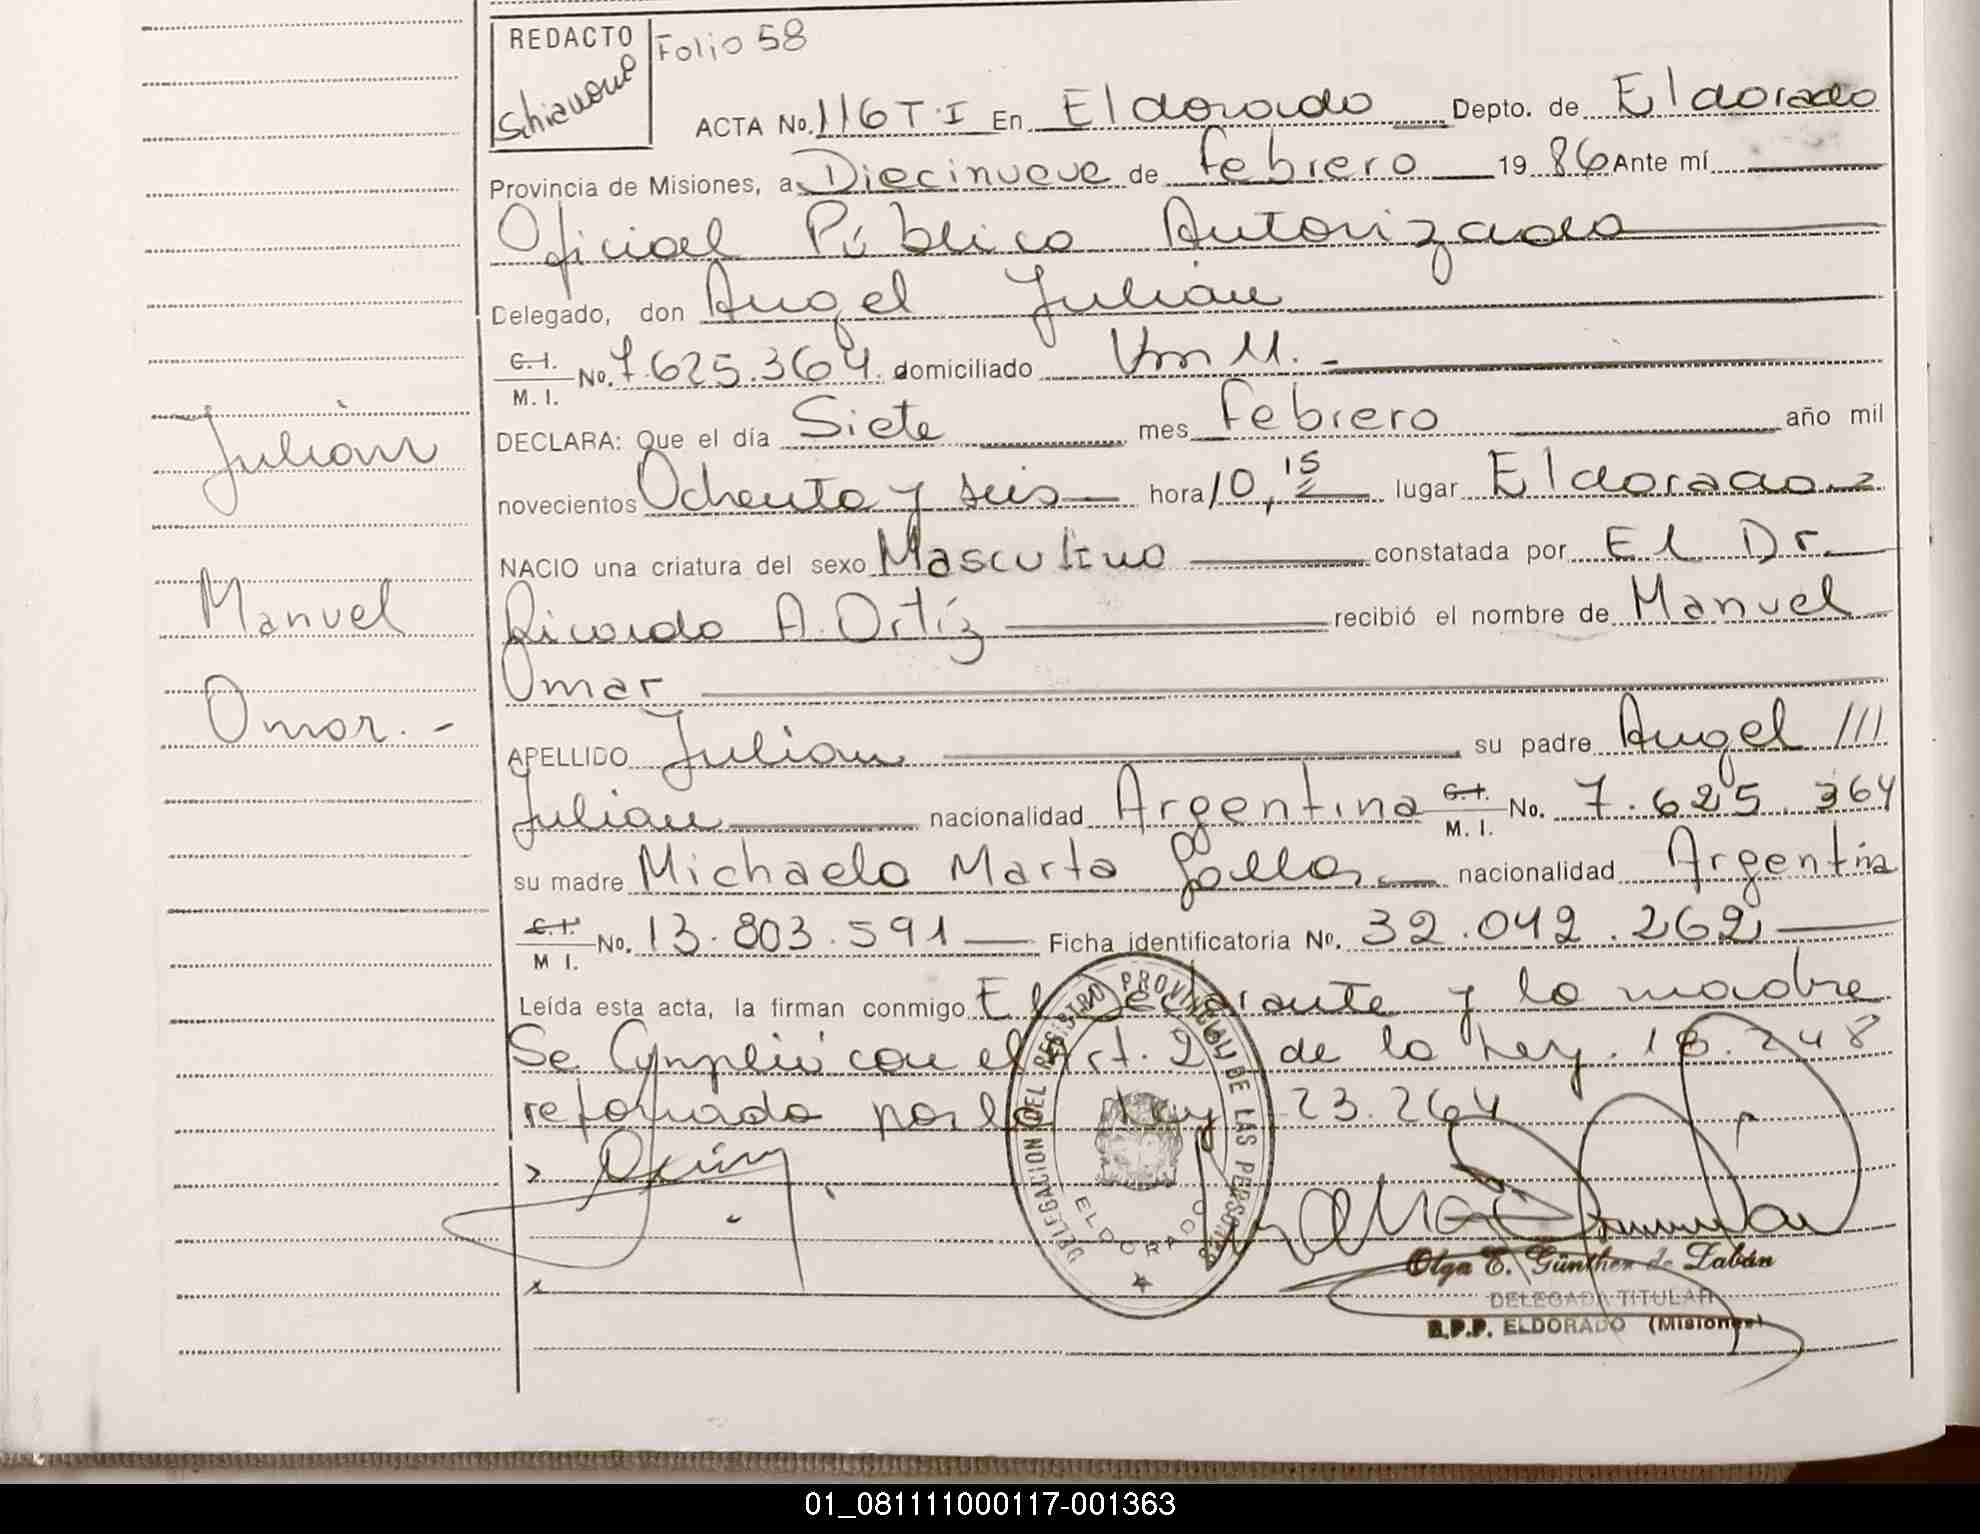 REDACTO
Schiavoni
Folio 58
ACTA No. 116 T.I En Eldorado Depto. de Eldorado
Provincia de Misiones, a Diecinueve de Febrero 19 86 Ante mí
Oficial Público Autorizado
Delegado, don Angel Julian
C.I. M. I. No. 7.625.364. domiciliado Km 11.-
DECLARA: Que el día Siete mes Febrero año mil
novecientos Ochenta y seis hora 10,15 lugar Eldorado
NACIO una criatura del sexo Masculino constatada por El Dr.
Ricardo A. Ortíz recibió el nombre de Manuel
Omar
APELLIDO Julian su padre Angel ///
Julian nacionalidad Argentina C.I. M. I. No. 7.625.364
su madre Michaela Marta nacionalidad Argentina
C.I. M I. No. 13.803.591 Ficha identificatoria No. 32.042.262
Leída esta acta, la firman conmigo El Declarante y la madre
Se Cumplió con el Art. 2 de la Ley. 18.248
reformado por la Ley 23.264
Julian
Manuel
Omar.-
DELEGACION DEL REGISTRO PROVINCIAL DE LAS PERSONAS
ELDORADO
Olga E. Günther de Zabán
DELEGADA TITULAR
R.P.P. ELDORADO (Misiones)
01_081111000117-001363